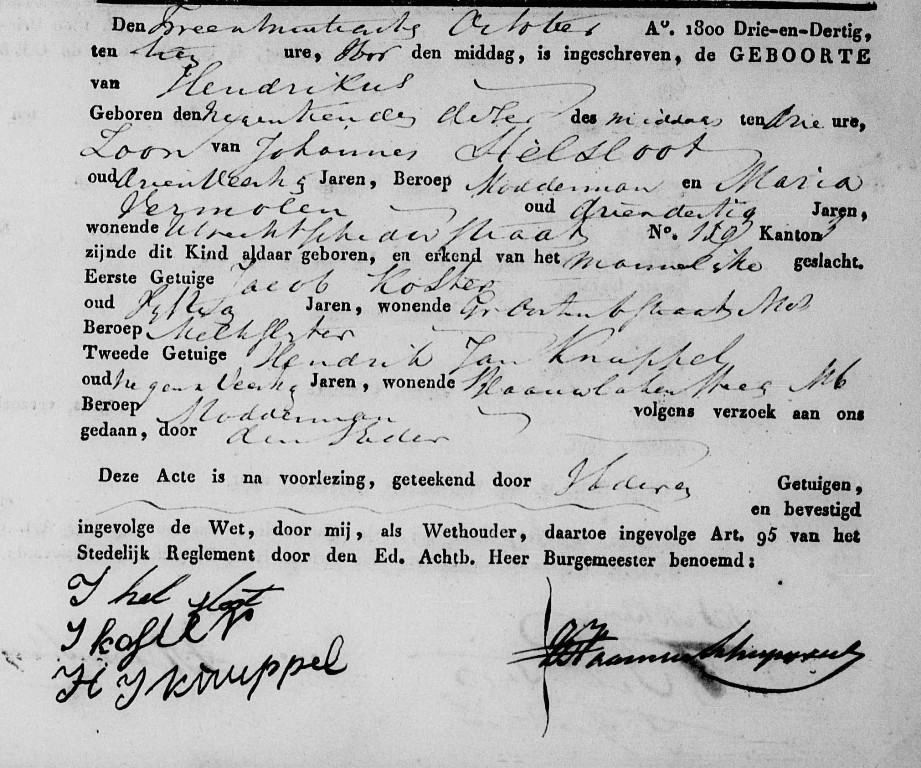 Den Tweentwintigsten October Aº. 1800 Drie-en-Dertig,
ten tien ure, Voor den middag, is ingeschreven, de GEBOORTE
van Hendrikus
Geboren den negentienden dezer des middags ten drie ure,
Zoon van Johannes Helsloot
oud drienveertig Jaren, Beroep Modderman en Maria
Vermolen oud driendertig Jaren,
wonende Utrechtschedwarsstraat Nº. Kanton 3
zijnde dit Kind aldaar geboren, en erkend van het mannelijke geslacht.
Eerste Getuige Jacob Koster
oud vyftig Jaren, wonende
Beroep Melkslyter
Tweede Getuige Hendrik Jan Knuppel
oud negenveertig Jaren, wonende Blaauwlakensteeg Nº 6
Beroep Modderman volgens verzoek aan ons
gedaan, door den Vader
Deze Acte is na voorlezing, geteekend door Vader en Getuigen,
en bevestigd
ingevolge de Wet, door mij, als Wethouder, daartoe ingevolge Art. 95 van het
Stedelijk Reglement door den Ed. Achtb. Heer Burgemeester benoemd:
J hel sloot
J koster
H J knuppel